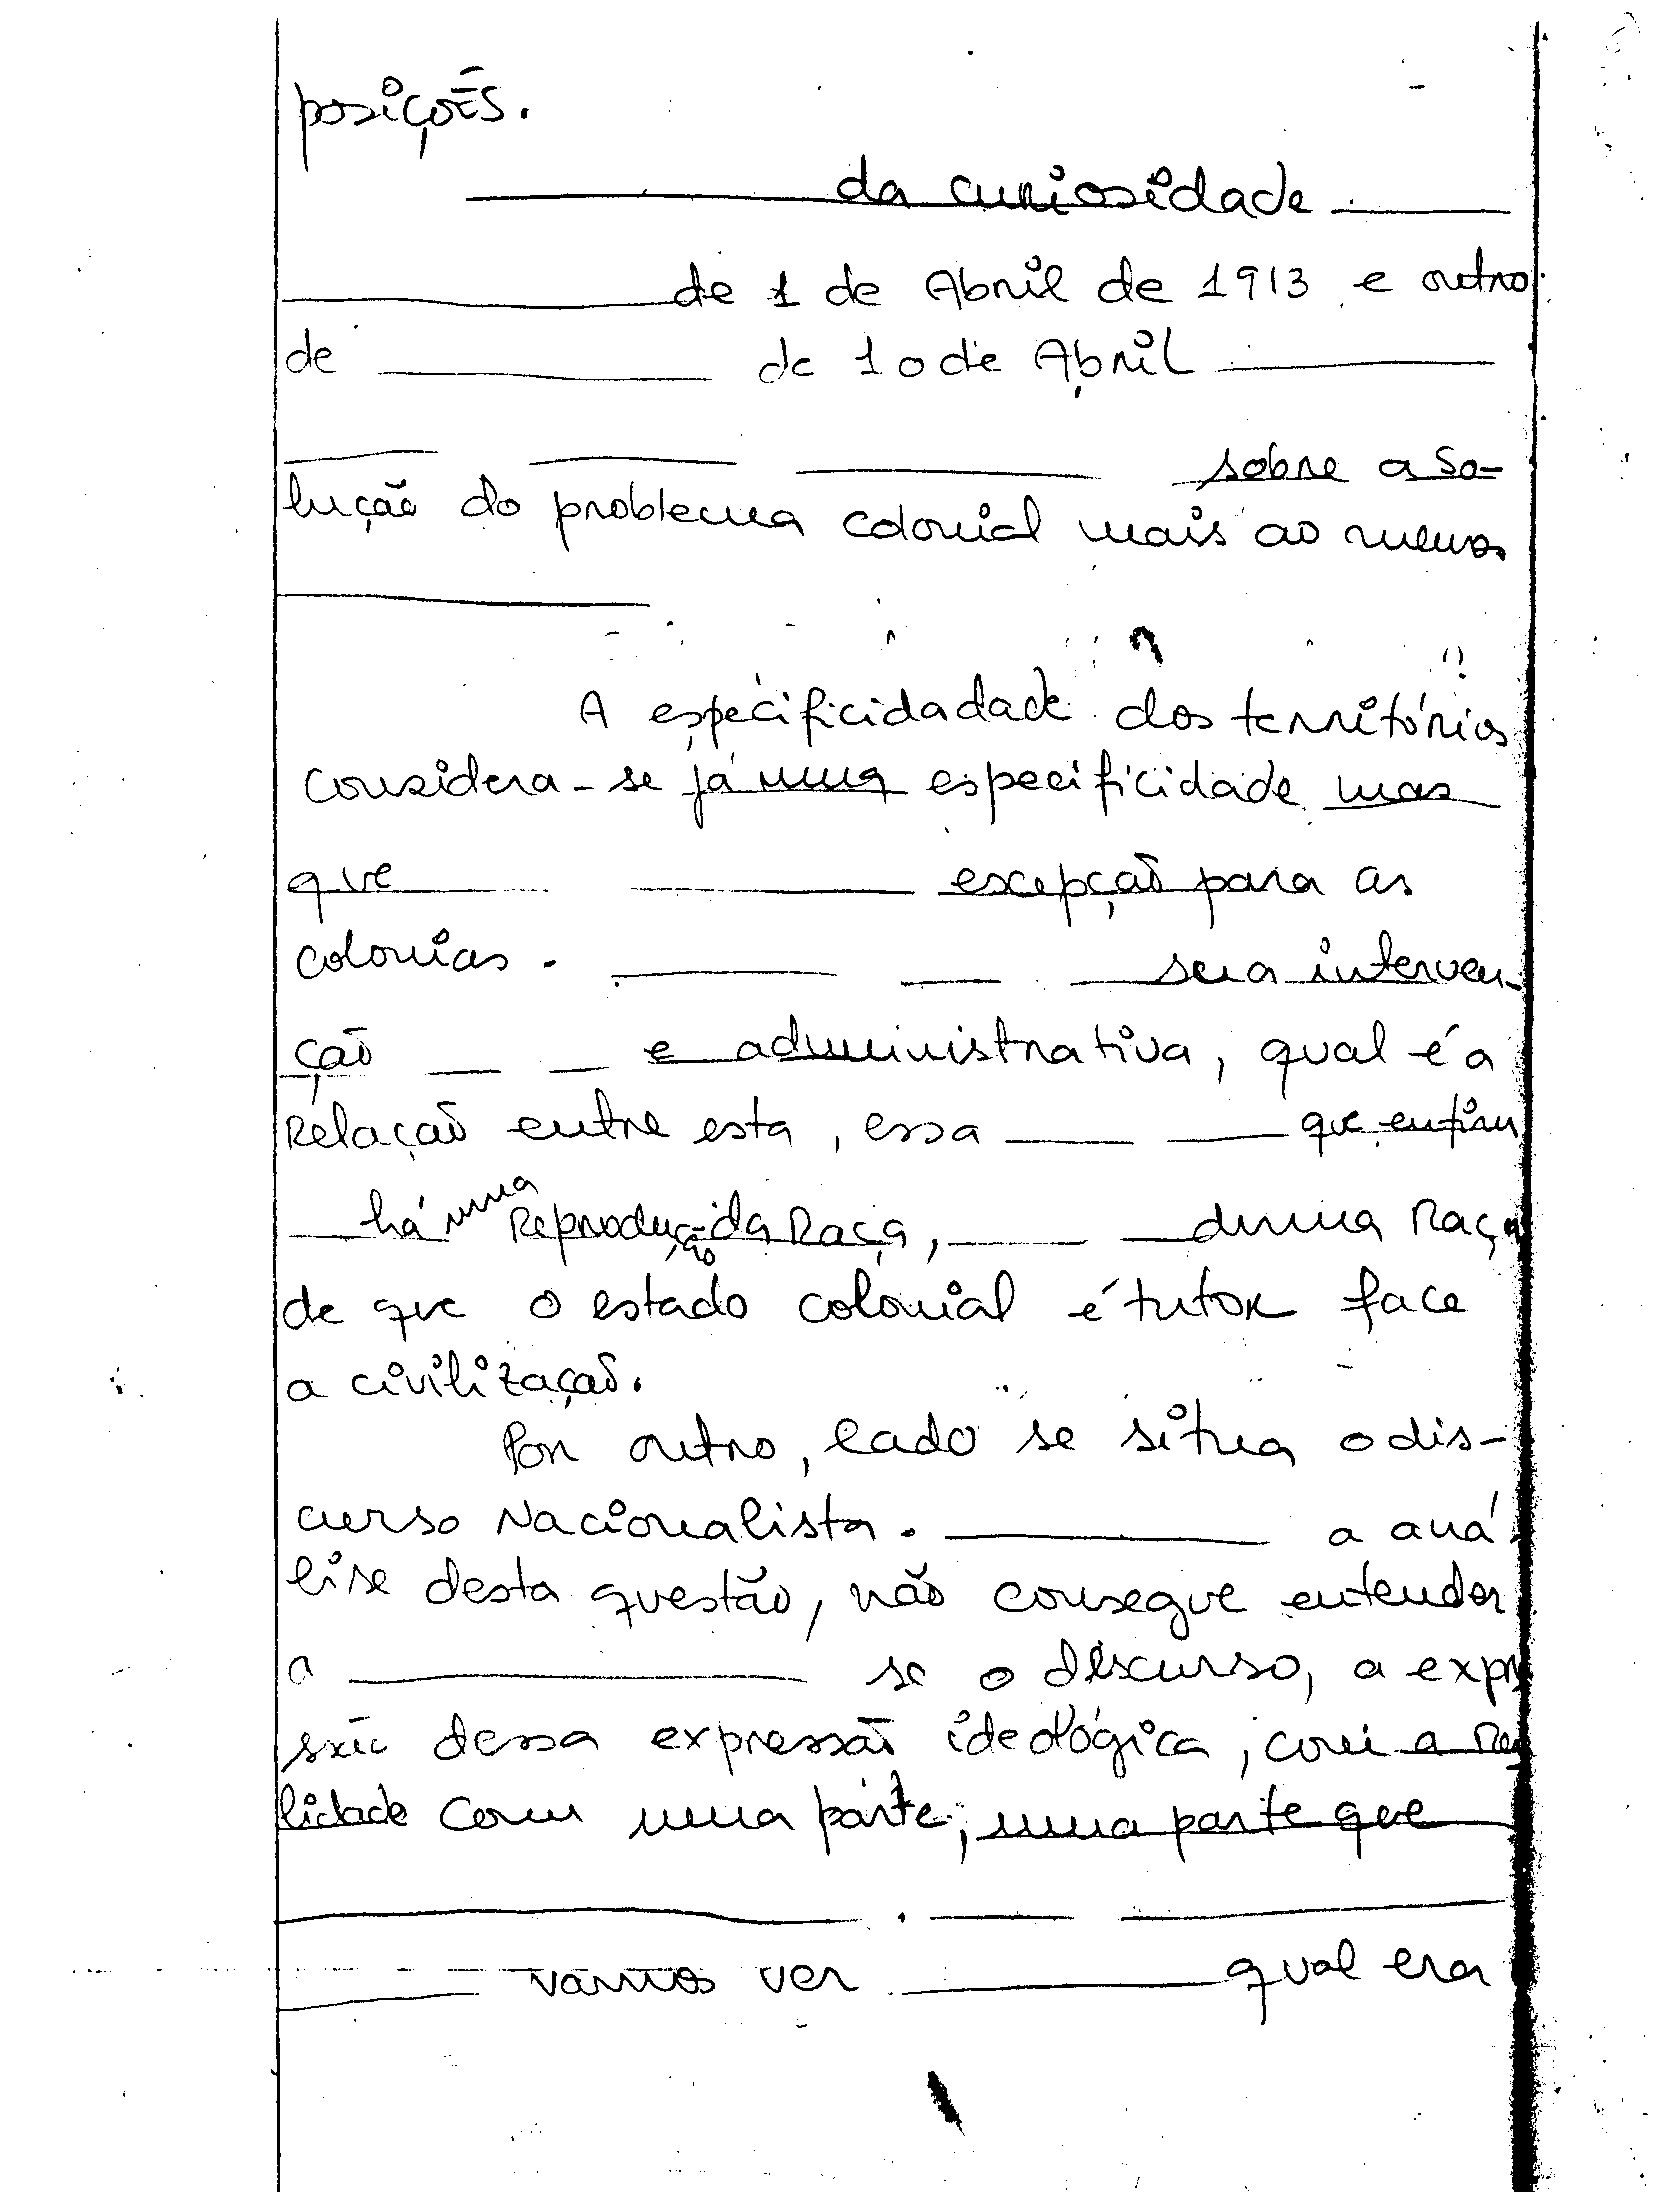 posições.
__________ da curiosidade _____
__________ de 1 de Abril de 1913 e outro
de __________ de 10 de Abril __________
_____ _____ __________ sobre a so-
lução do problema colonial mais ao menos
__________
A especificidadade dos territórios
considera-se já uma especificidade mas
que _____ __________ escepção para as
colonias. _____ ___ ___ seu a interven-
ção __ __ e administrativa, qual é a
Relação entre esta, essa _____ _____ que enfim
__ há uma Reprodução da Raça, _____ __ duma Raça
de que o estado colonial é tutor face
a civilização.
Por outro, lado se situa o dis-
curso Nacionalista. __________ a aná-
lise desta questão, não consegue entender
a __________ se o discurso, a expres
são dessa expressão ideológica, com a Rea
lidade com uma parte, uma parte que
__________ . _____ __________
_____ vamos ver __________ qual era